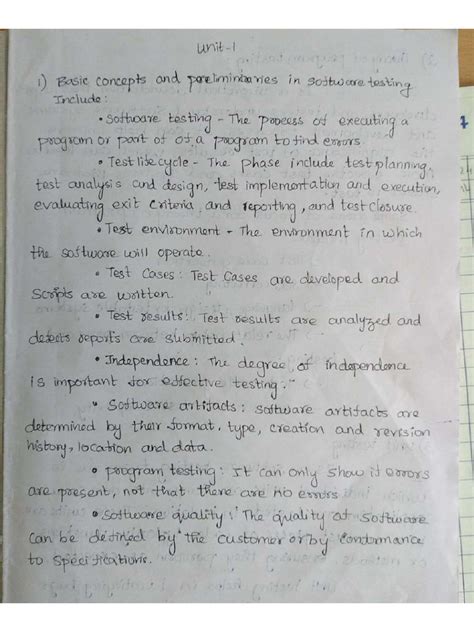 unit-1
1) Basic concepts and preliminbaries in software testing
Include:
• Software testing - The process of executing a
program or part of of a program to find errors.
• Test life cycle - The phase include test planning,
test analysis and design, test implementation and execution,
evaluating exit criteria and reporting, and test closure.
• Test environment - The environment in which
the software will operate.
• Test Cases: Test Cases are developed and
Scripts are written.
• Test results: Test results are analyzed and
defects reports are submitted.
• Independence: The degree of independence
is important for effective testing.
• Software artifacts: software artifacts are
determined by their format, type, creation and revision
history, location and data.
• program testing: It can only show if errors
are present, not that there are no errors
• Software quality: The quality of software
can be defined by the customer or by conformance
to specifications.